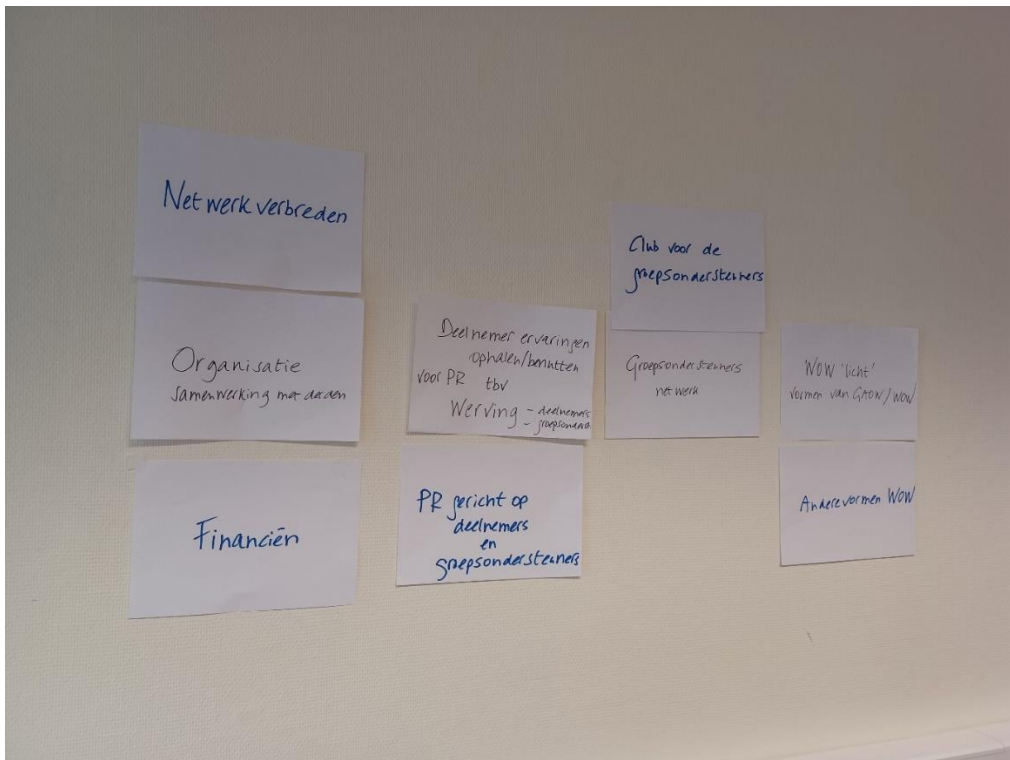 Netwerk verbreden
Organisatie
Samenwerking met derden
Financiën
Deelnemer ervaringen
ophalen/benutten
voor PR tbv
Werving - deelnemers
- groepsonderst
PR gericht op
deelnemers
en
groepsondersteuners
Club voor de
groepsondersteuners
Groepsondersteuners
netwerk
WOW 'licht'
vormen van GAOW/WOW
Andere vormen WOW